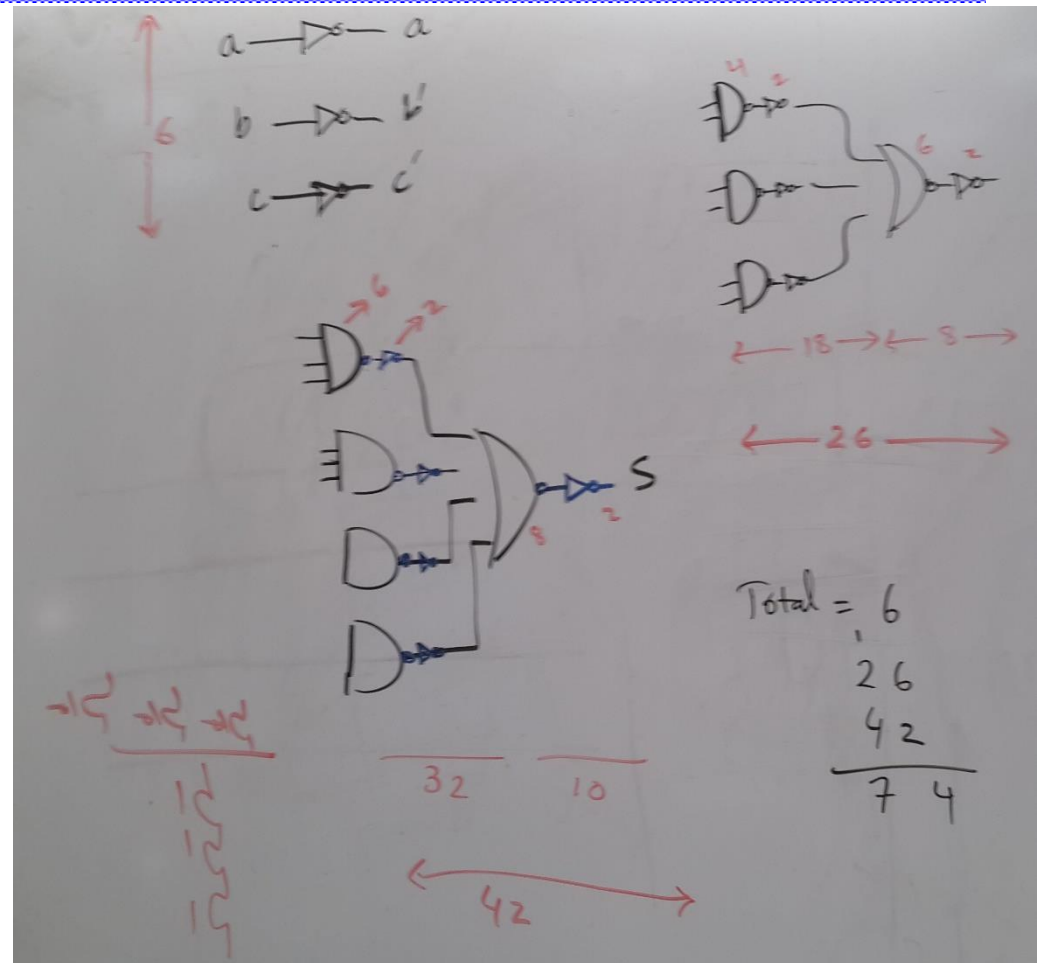 a a
b b'
c c'
6
4 2
6 2
18 8
26
6 2
S
8 2
32 10
42
Total = 6
26
42
74